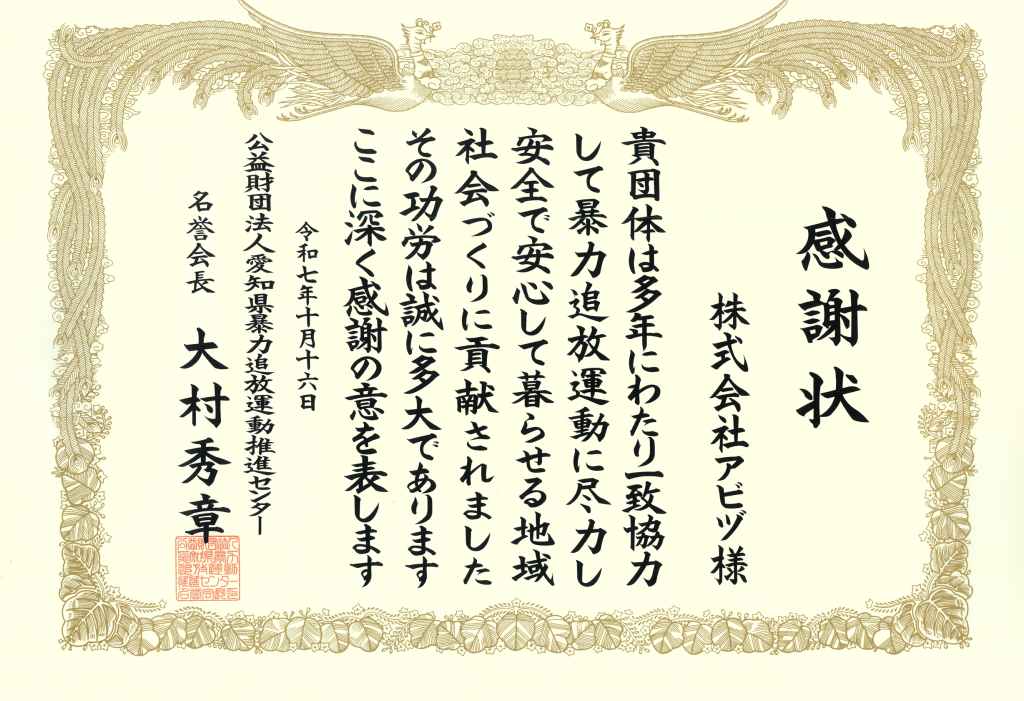 感謝状
株式会社アビヅ様
貴団体は多年にわたり一致協力
して暴力追放運動に尽力し
安全で安心して暮らせる地域
社会づくりに貢献されました
その功労は誠に多大であります
ここに深く感謝の意を表します
令和七年十月十六日
公益財団法人愛知県暴力追放運動推進センター
名誉会長 大村秀章